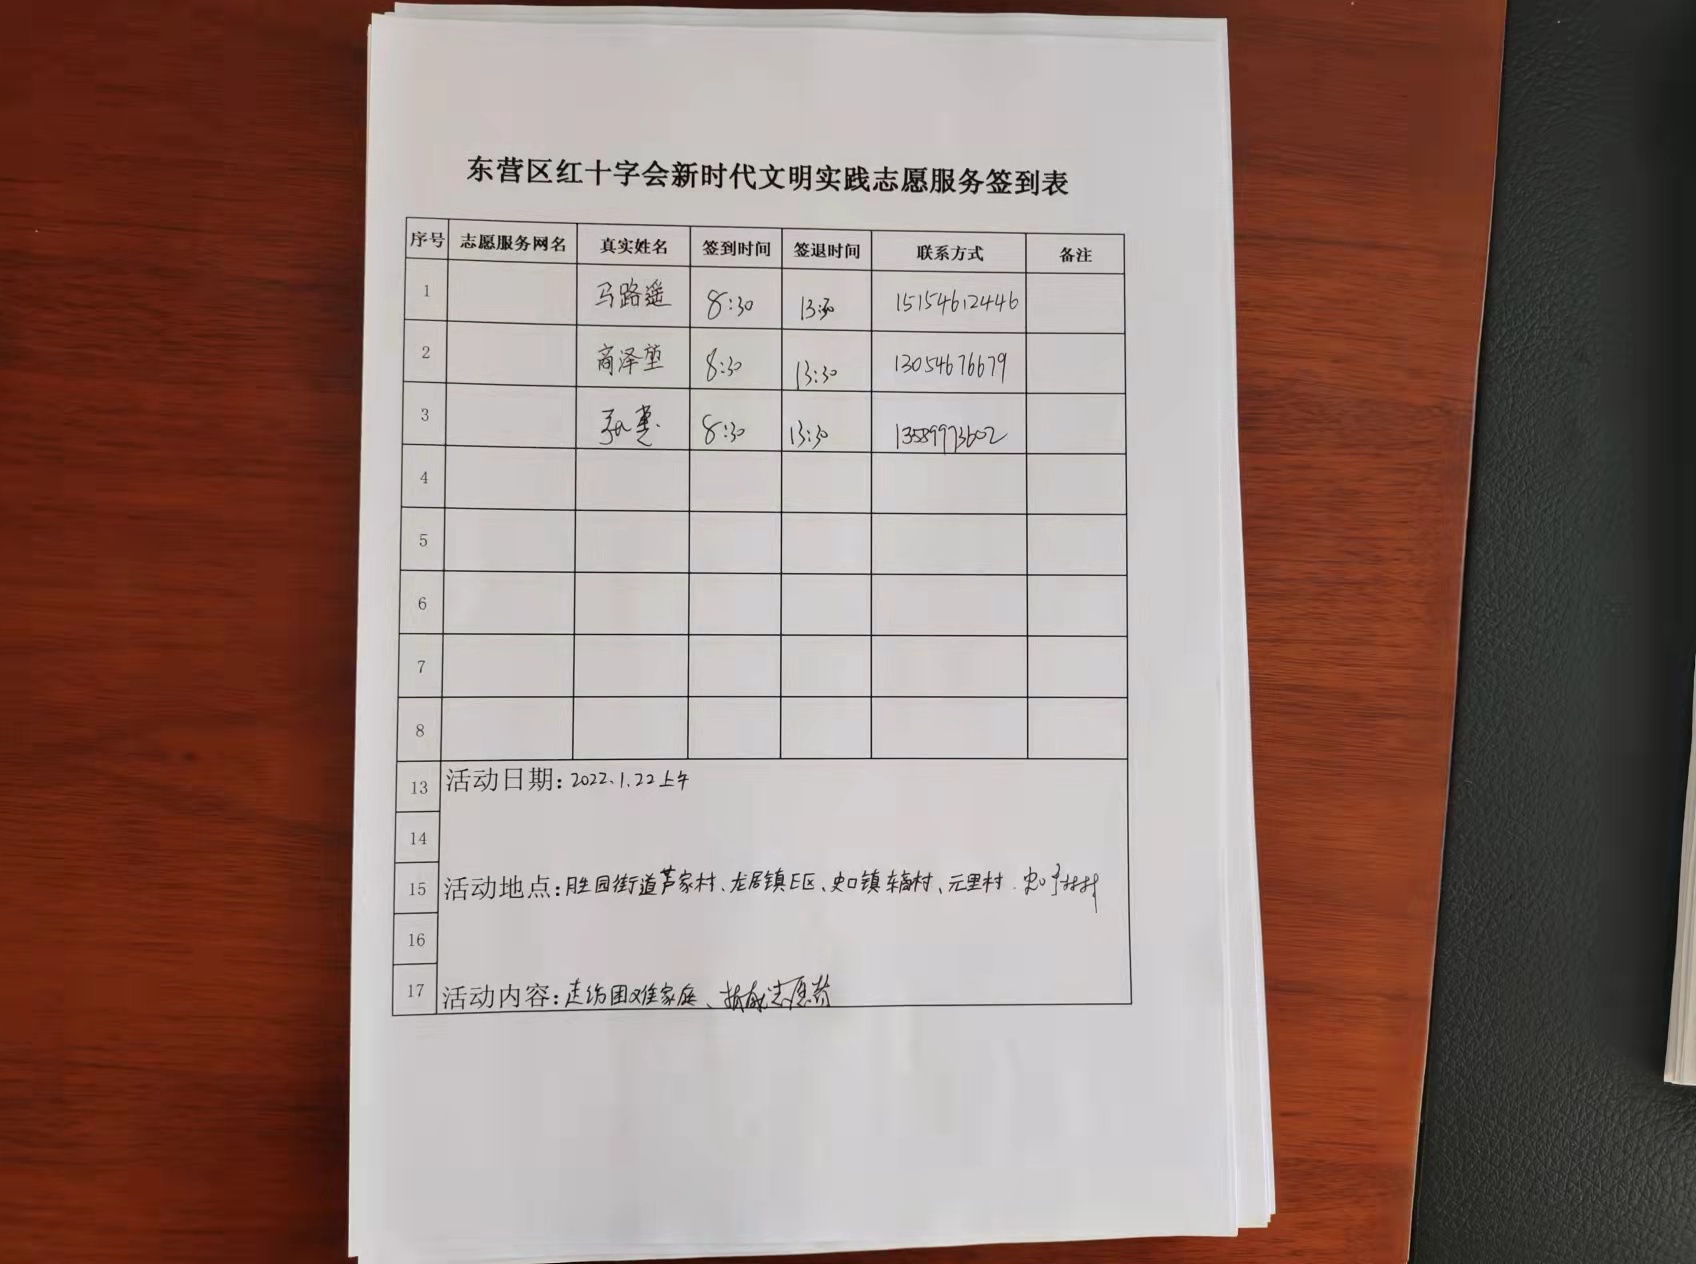 东营区红十字会新时代文明实践志愿服务签到表
序号 志愿服务网名 真实姓名 签到时间 签退时间 联系方式 备注
1 马路遥 8:30 13:30 15154612446
2 商泽堃 8:30 13:30 13054676679
3 8:30 13:30 13589973602
4
5
6
7
8
13 活动日期:2022.1.22上午
14
15 活动地点:胜园街道芦家村、龙居镇E区、史口镇 村、元里村.
16
17 活动内容:走访困难家庭、 志愿者